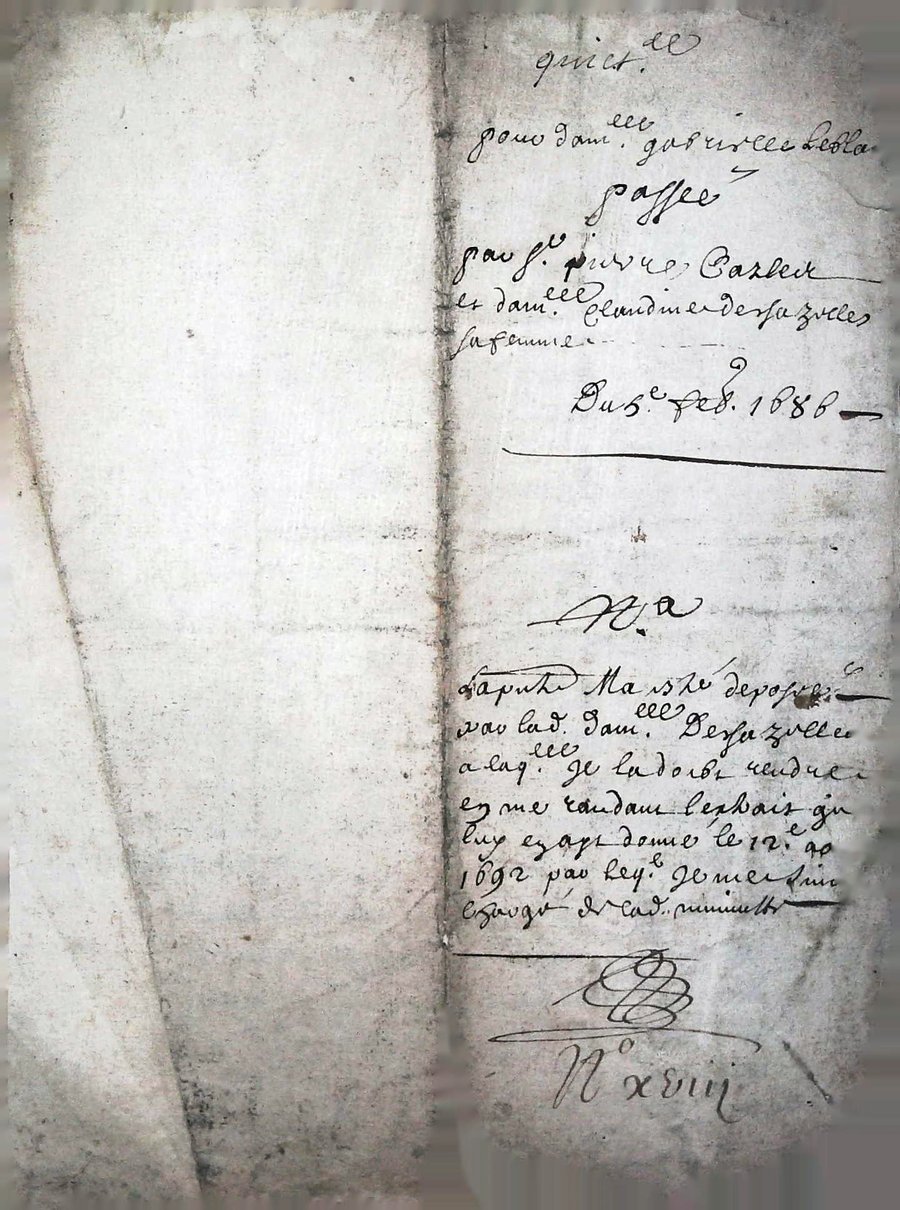 quict.ce
pour dam.lle gabrielle
passée
par s.r pierre
et dam.lle Claudine dersazelles
sa femme
Du 5.e feb. 1686
N.a
déposée
par lad. dam.lle Dersazelle
a laq.lle Je la doibt rendre
en me randant l'extrait qu
luy en ayt donné le 12.e
1692 par leq.l Je me suis
chargé de lad. minutte
N° xviij